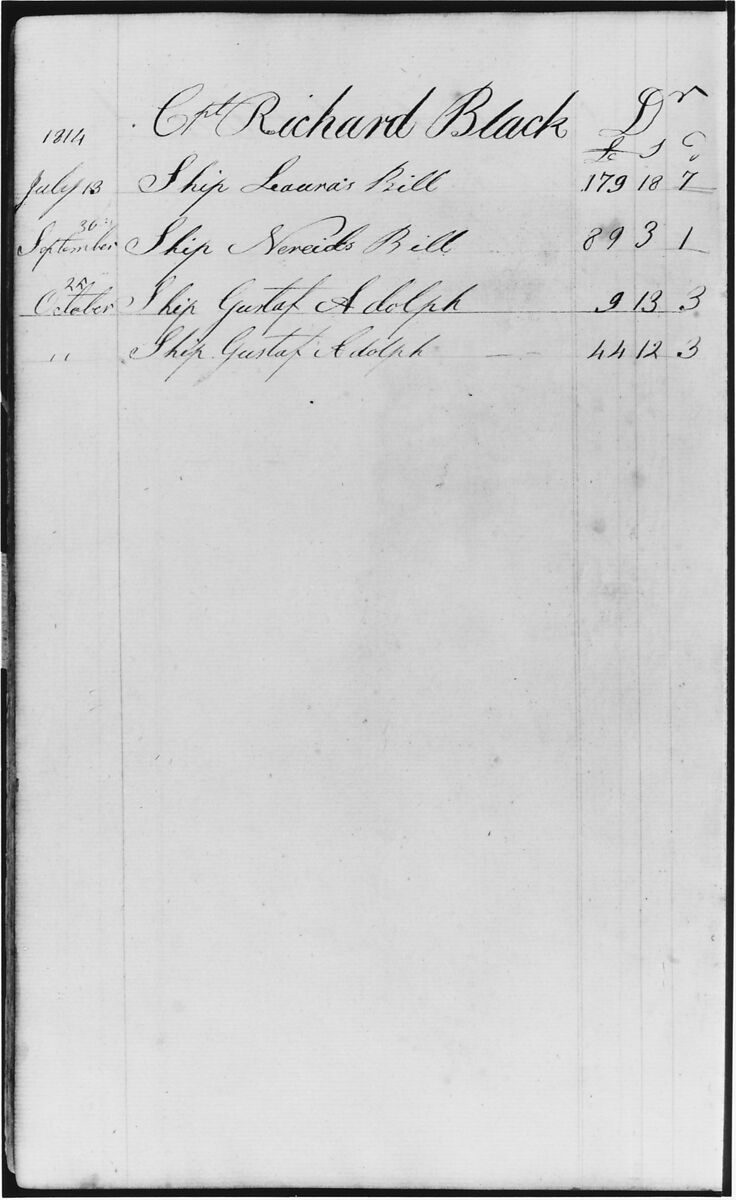 Cpt Richard Black Dr
1814 £ S D
July 13 Ship Laura's Bill 179 18 7
September 30th Ship Nereid's Bill 89 3 1
October 25 Ship Gustaf Adolph 9 13 3
" Ship Gustaf Adolph 44 12 3